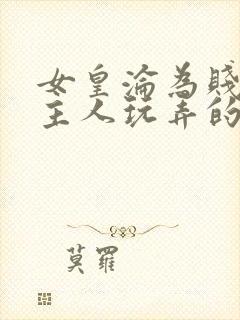 女皇淪為賤
主人玩弄的
莫羅